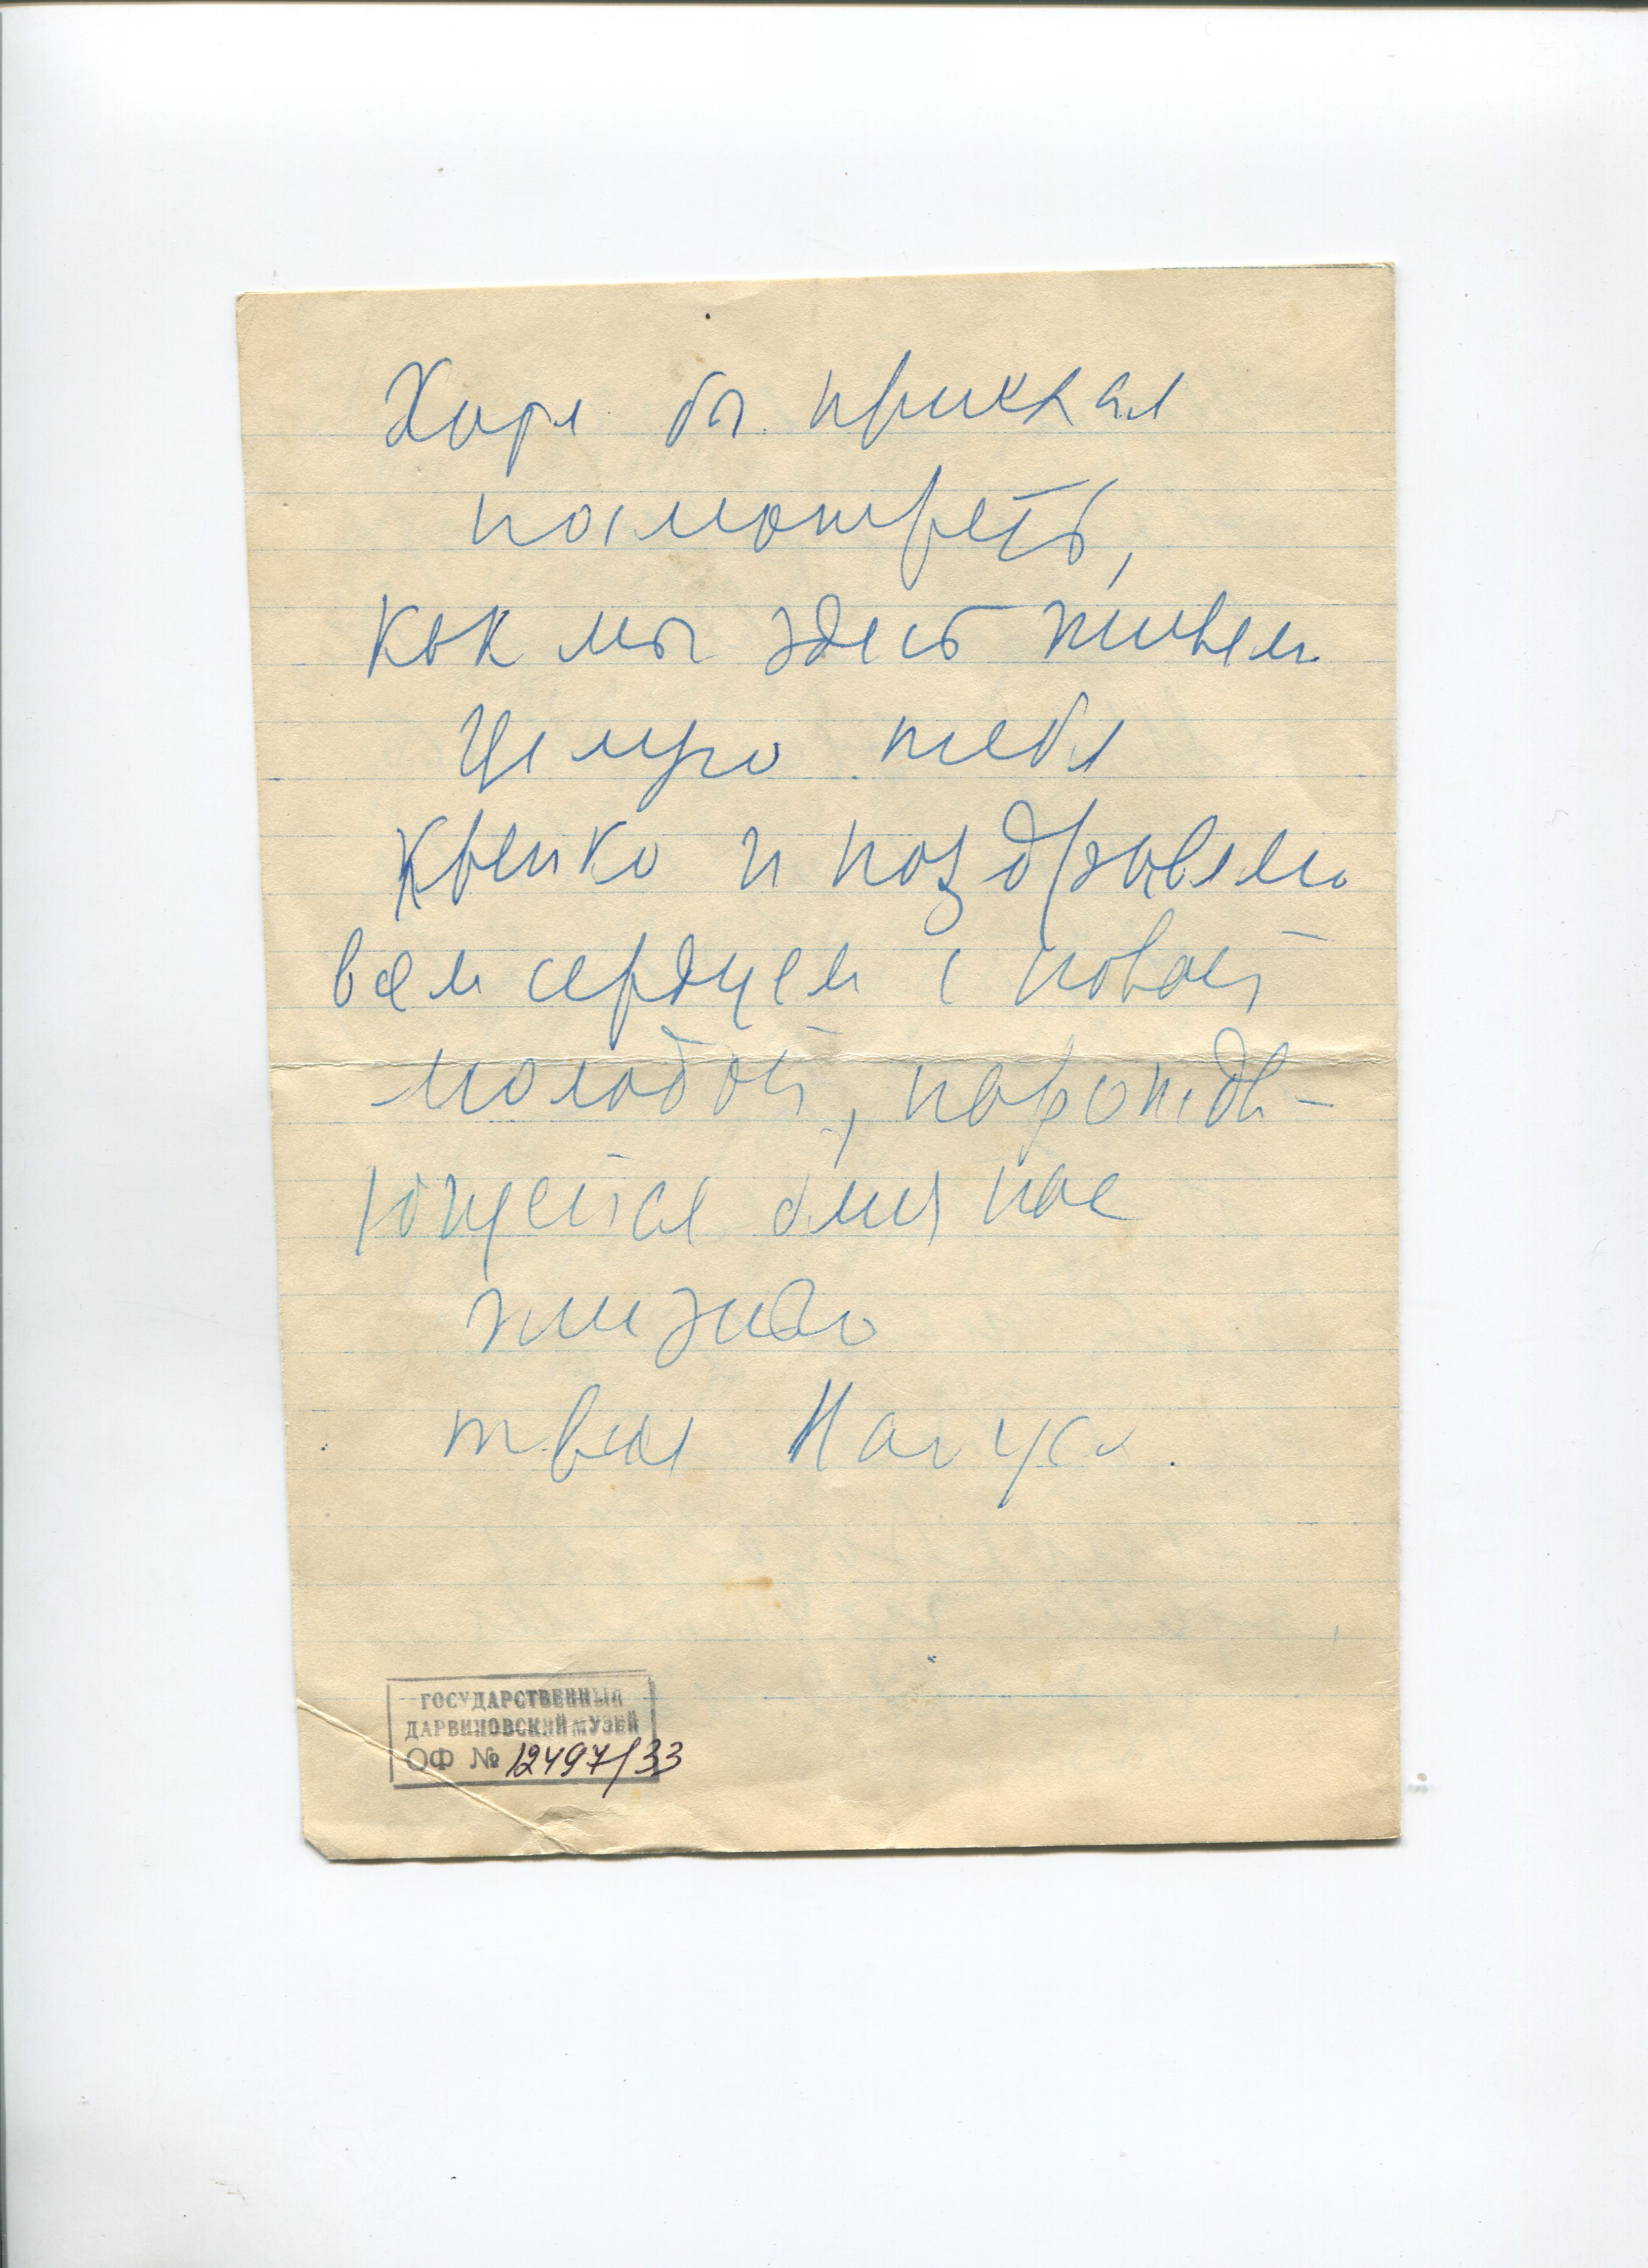 Хотя бы приехал
посмотреть,
как мы здесь живем
Целую тебя
крепко и поздравляю
всем сердцем с новой
молодой, нарожда-
ющейся для нас
жизнью
твоя
ГОСУДАРСТВЕННЫЙ
ДАРВИНОВСКИЙ МУЗЕЙ
ОФ № 12497/33